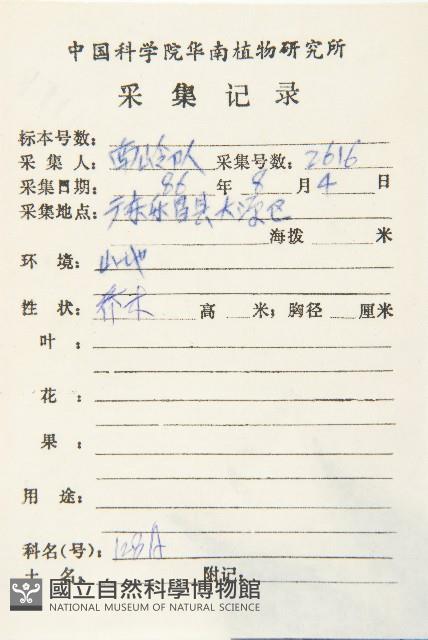 中国科学院华南植物研究所
采集记录
标本号数：
采集人：南岭队 采集号数：2616
采集日期：86年8月4日
采集地点：广东乐昌县大源
海拨 米
环境：山地
性状：乔木 高 米；胸径 厘米
叶：
花：
果：
用途：
科名(号)：128A
土名： 附记：
國立自然科學博物館
NATIONAL MUSEUM OF NATURAL SCIENCE